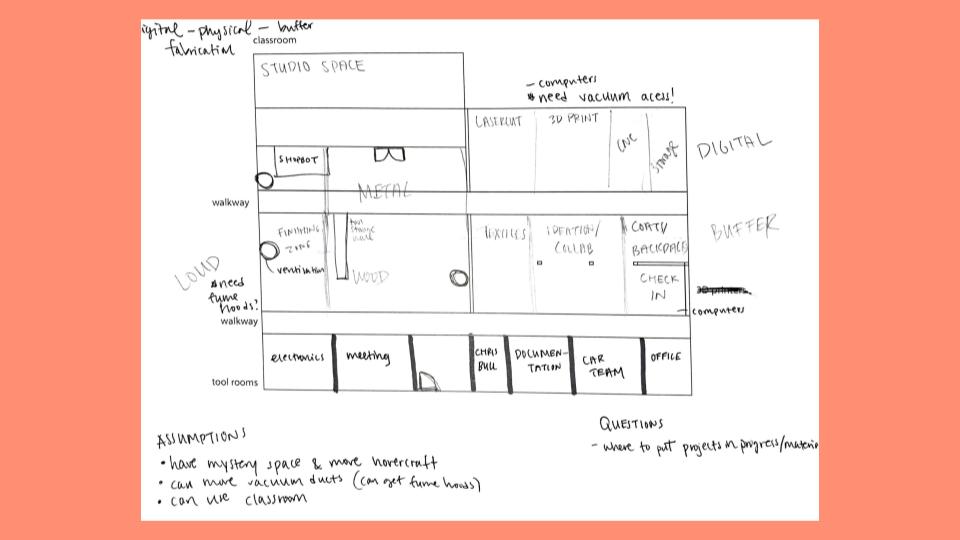 igital - physical - buffer
fabrication
classroom
STUDIO SPACE
- computers
* need vacuum acess!
LASERCUT
3D PRINT
CNC
storage
DIGITAL
SHOPBOT
METAL
walkway
FINISHING
ZONE
ventilation
tool
storage
WOOD
TEXTILES
IDEATION/
COLLAB
COATV
BACKPACK
CHECK
IN
BUFFER
3D printers
computers
LOUD
*need
fume
hoods?
walkway
electronics
meeting
CHRIS
BULL
DOCUMEN-
TATION
CAR
TEAM
OFFICE
tool rooms
ASSUMPTIONS
• have mystery space & move hovercraft
• can move vacuum ducts (can get fume hoods)
• can use classroom
QUESTIONS
- where to put projects in progress/materia